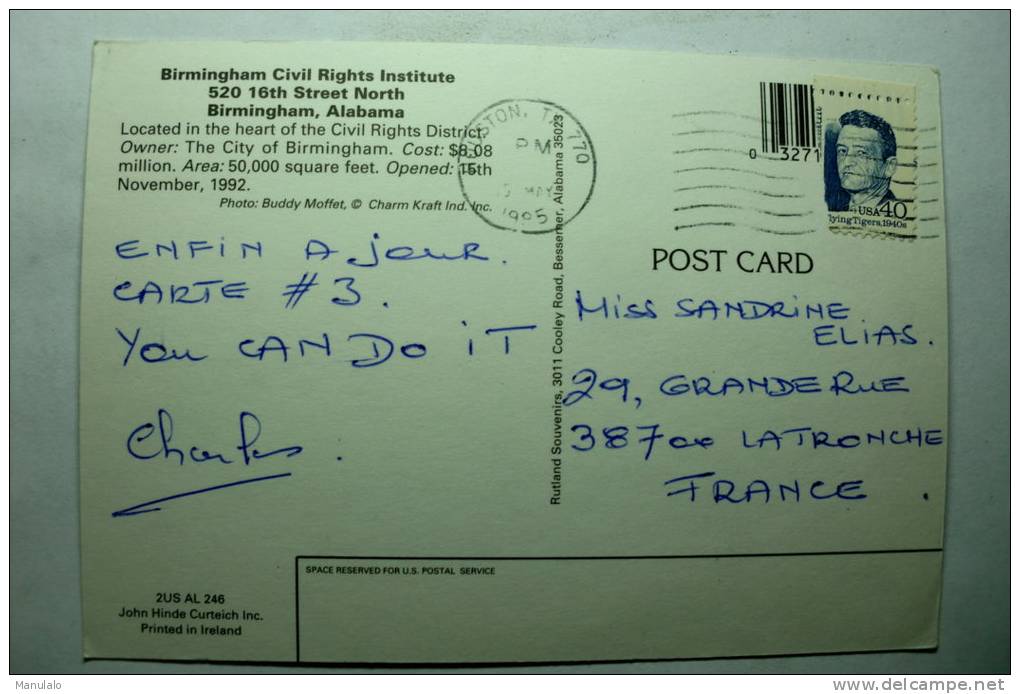 Birmingham Civil Rights Institute
520 16th Street North
Birmingham, Alabama
Located in the heart of the Civil Rights District.
Owner: The City of Birmingham. Cost: $8.08
million. Area: 50,000 square feet. Opened: 15th
November, 1992.
Photo: Buddy Moffet, © Charm Kraft Ind. Inc.
ENFIN A JOUR.
CARTE #3.
YOU CAN DO IT
Charles.
2US AL 246
John Hinde Curteich Inc.
Printed in Ireland
Rutland Souvenirs, 3011 Cooley Road, Bessemer, Alabama 35023
HOUSTON, TX 770
PM
5 MAY
1995
0 3271
USA 40
lying Tigers, 1940s
POST CARD
MISS SANDRINE
ELIAS.
29, GRANDE RUE
38700 LA TRONCHE
FRANCE.
SPACE RESERVED FOR U.S. POSTAL SERVICE
Manulalo
delcampe.net